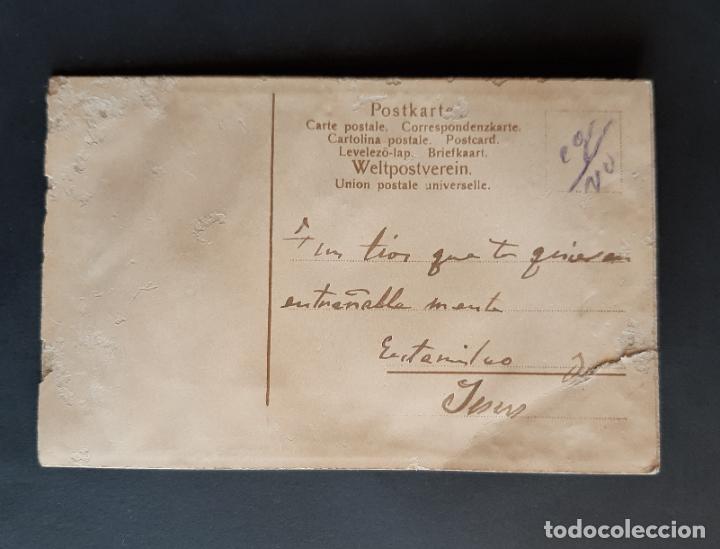 Postkarte.
Carte postale. Correspondenzkarte.
Cartolina postale. Postcard.
Levelező-lap. Briefkaart.
Weltpostverein.
Union postale universelle.
tios que te quieren
entrañable mente
Jesus
todocoleccion